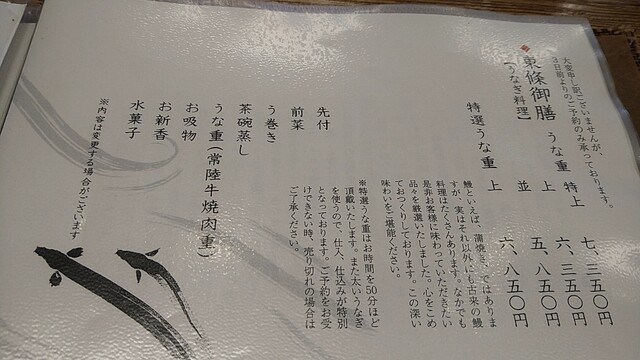 大変申し訳ございませんが、
3日前よりのご予約のみ承っております。
東條御膳
【うなぎ料理】
うな重 特上 七、三五〇円
上 六、三五〇円
並 五、八五〇円
特選うな重 上 六、八五〇円
鰻といえば、蒲焼き、ではありま
すが、実はそれ以外にも古来の鰻
料理はたくさんあります。なかでも
是非お客様に味わっていただきたい
品々を厳選いたしました。心をこめ
ておつくりしております。この深い
味わいをご堪能ください。
※特選うな重はお時間を50分ほど
頂戴いたします。また太いうなぎ
を使うので、仕入、仕込みが特別
となっております。ご予約をお受
けできない時、売り切れの場合は
ご了承ください。
先付
前菜
う巻き
茶碗蒸し
うな重(常陸牛焼肉重)
お吸物
お新香
水菓子
※内容は変更する場合がございます